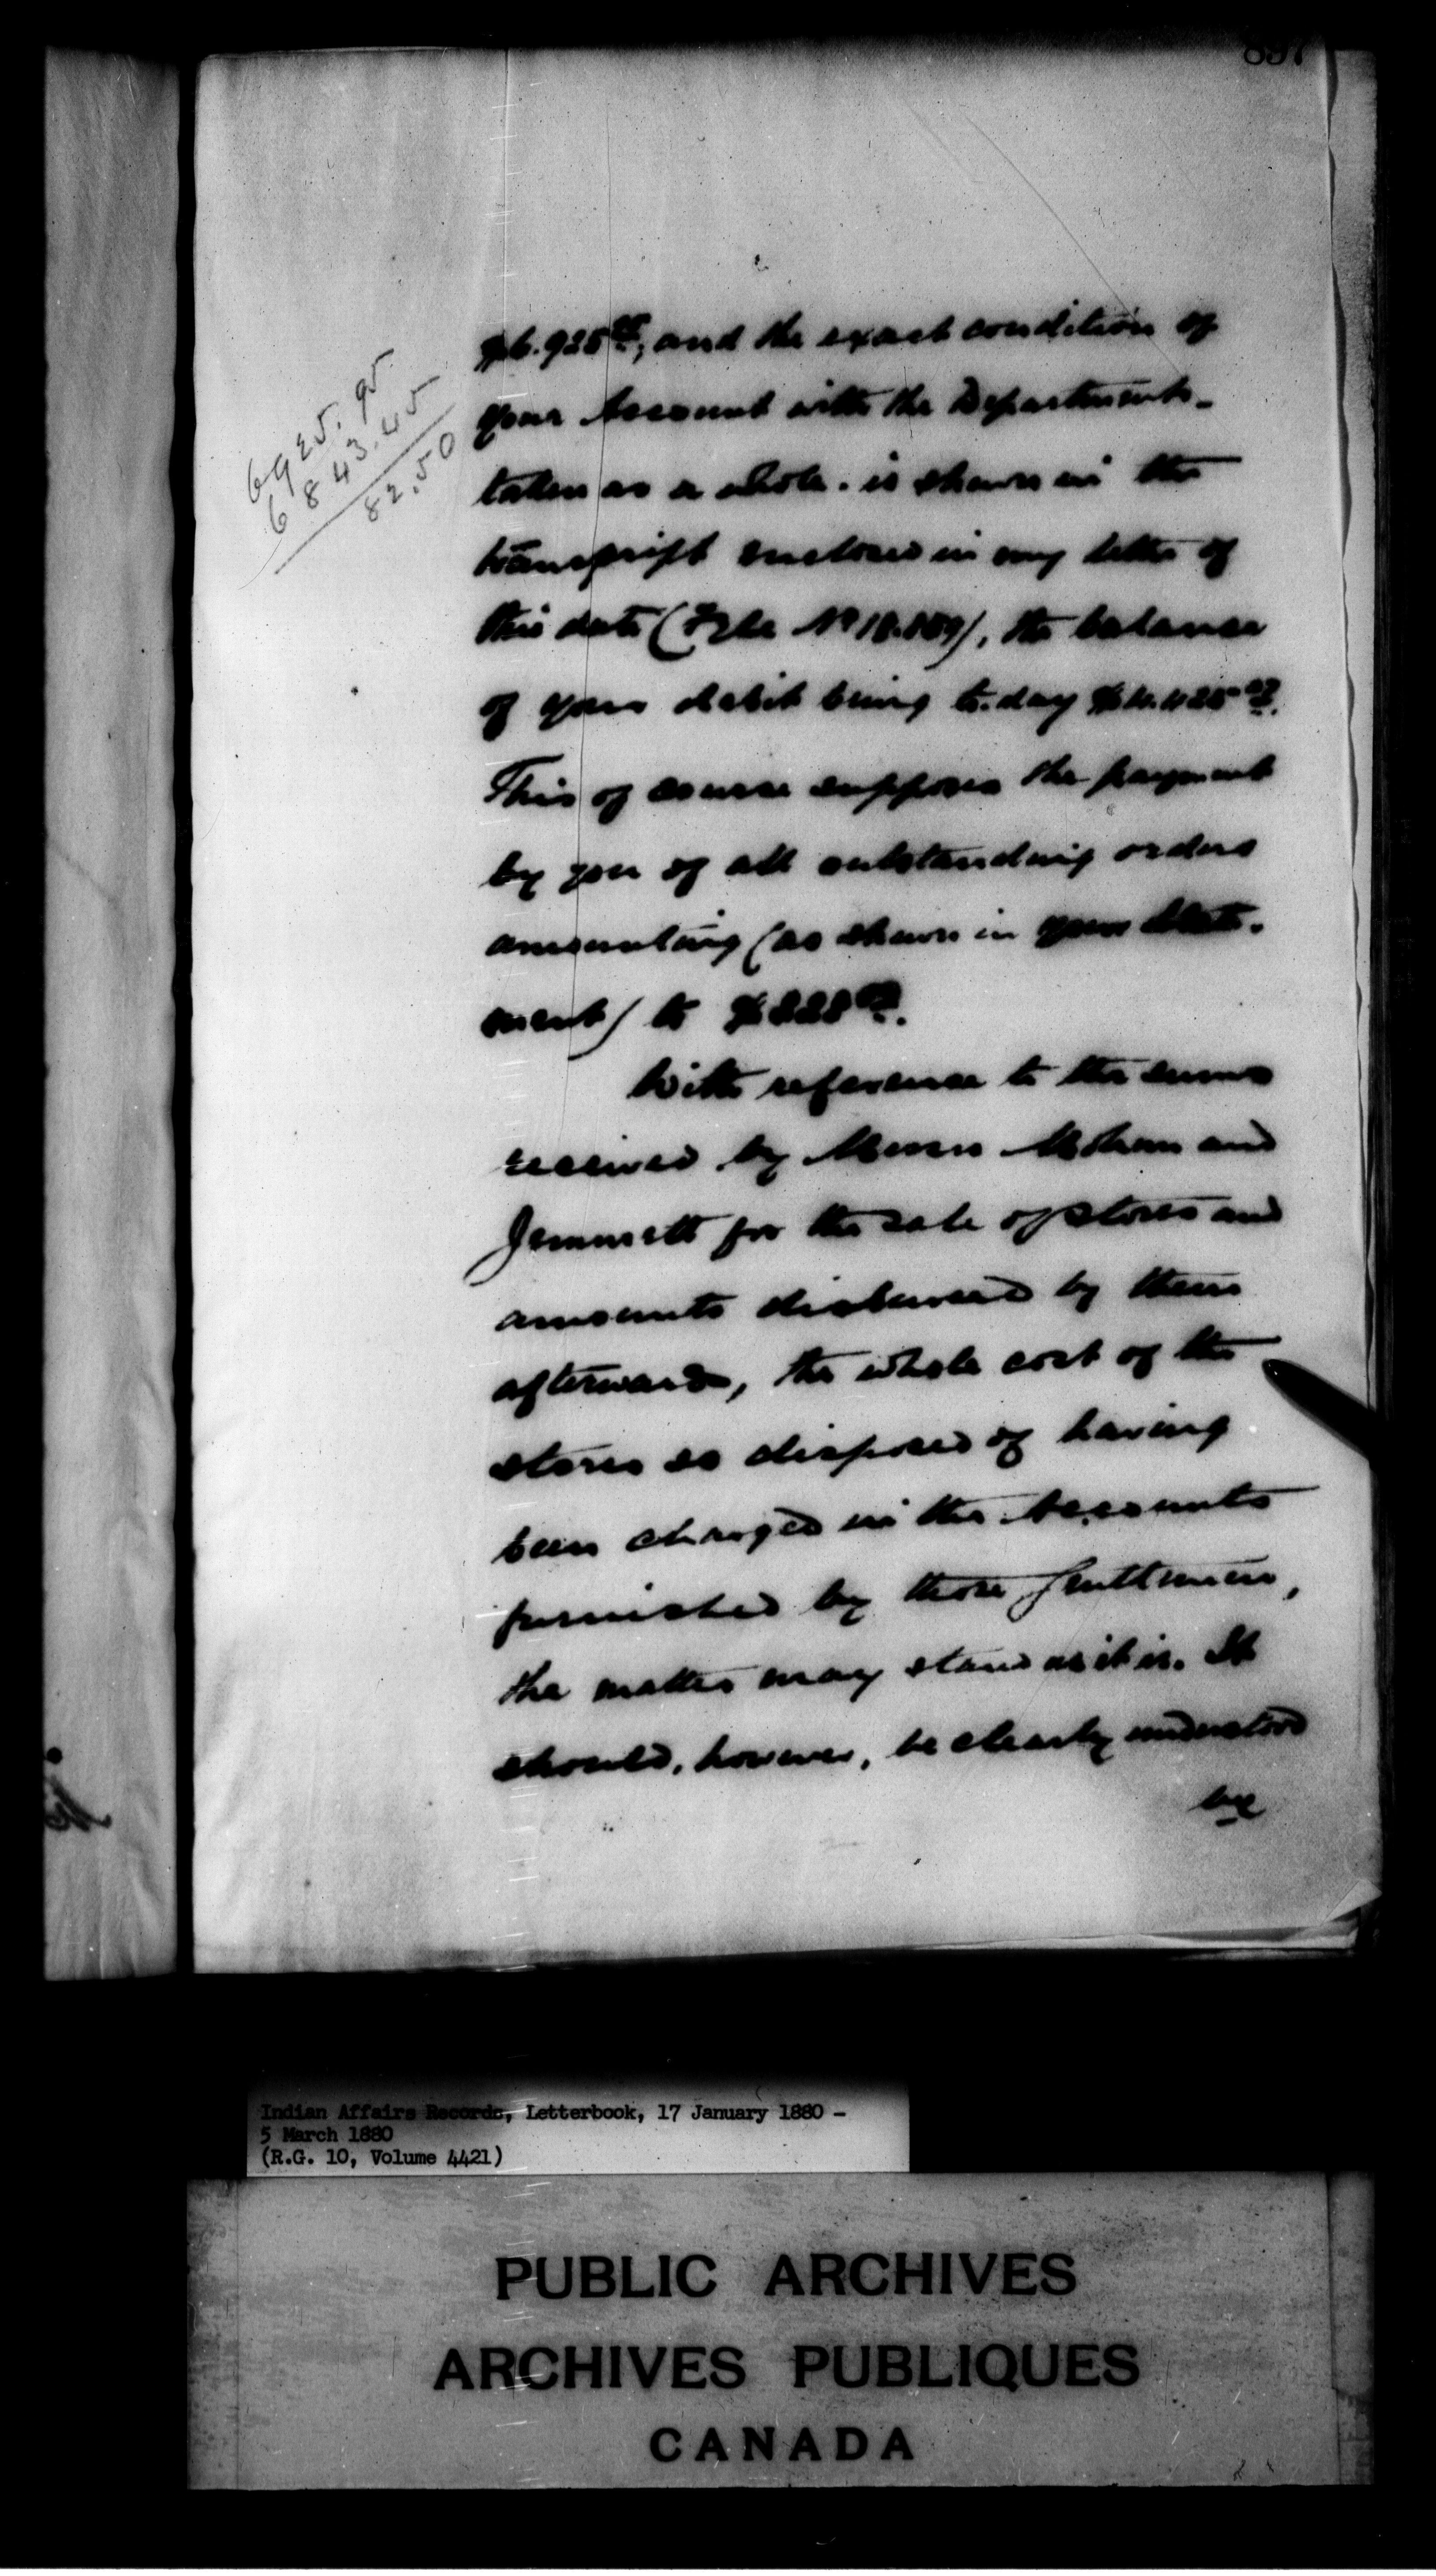 897
6925.95
6843.45
82.50
$6.925 95/, and the exact condition of
your Account with the Department -
taken as a whole - is shown in the
transcript enclosed in my letter of
this date (File No 18.889), the balance
of your debit being to-day
This of course supposes the payment
by you of all outstanding orders
amounting (as shown in your State-
ment) to
With reference to the sums
received by Messrs and
Jemmett for the sale of stores and
amounts disbursed by them
afterwards, the whole cost of the
stores so disposed of having
been charged in the Accounts
furnished by those Gentlemen,
the matter may stand as it is. It
should, however, be clearly understood
by
Indian Affairs Records, Letterbook, 17 January 1880 -
5 March 1880
(R.G. 10, Volume 4421)
PUBLIC ARCHIVES
ARCHIVES PUBLIQUES
CANADA